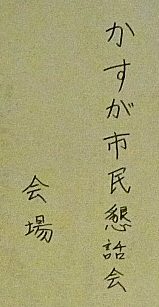 かすが市民懇話会
会場